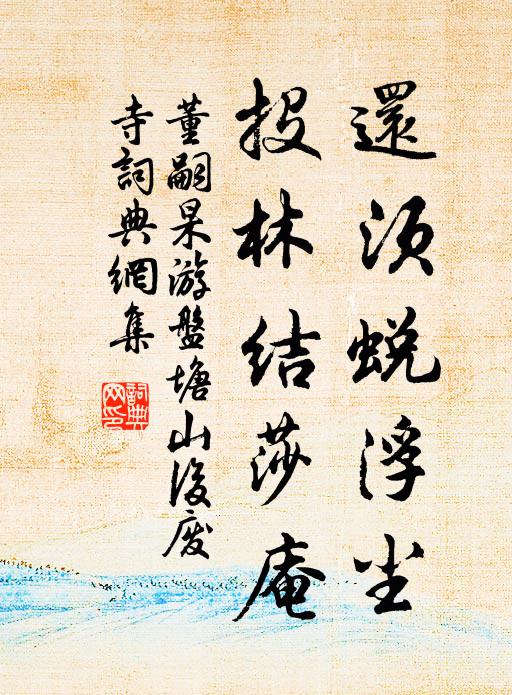 還須蛻浮尘
投林結莎庵
董嗣杲游盤塘山後廢
寺詞典網集
詞典
网印